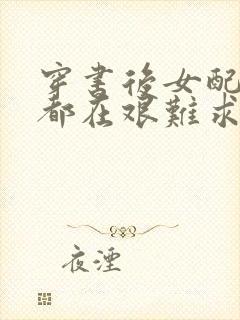 穿書後女配
都在艱難求
夜湮